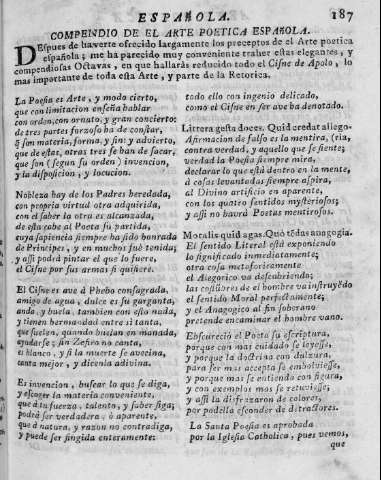 ESPAÑOLA. 187
COMPENDIO DE EL ARTE POETICA ESPAÑOLA.
DEspues de haverte ofrecido largamente los preceptos de el Arte poetica
española; me ha parecido muy conveniente traher estas elegantes, y
compendiosas Octavas, en que hallarás reducido todo el Cisne de Apolo, lo
mas importante de toda esta Arte, y parte de la Retorica.
La Poesia es Arte, y modo cierto,
que con imitacion enseña hablar
con orden, con ornato, y gran concierto:
de tres partes forzoso ha de constar,
q̃ son materia, forma, y fin: y advierto,
que de estar, otras tres se han de sacar,
que son (segun su orden) invencion,
y la disposicion, y locucion.
Nobleza hay de los Padres heredada,
con propria virtud otra adquirida,
con el saber la otra es alcanzada,
de esta cabe al Poeta su partida,
cuya sapiencia siempre ha sido honrada
de Principes, y en muchos fue tenida;
y assi podrá pintar el que lo fuere,
el Cisne por sus armas si quisiere.
El Cisne es ave á Phebo consagrada,
amigo de agua, dulce es su garganta,
anda, y buela, tambien con esto nada,
y tienen hermandad entre si tanta,
que suelen, quando buelan en manada,
ayudarse; sin Zefiro no canta,
es blanco, y si la muerte se avecina,
canta mejor, y dicenla adivina.
Es invencion, buscar lo que se diga,
y escoger la materia conveniente,
que á tu fuerza, talento, y saber siga;
podrá ser verdadera, ò aparente,
que á natura, y razon no contradiga,
y puede ser fingida enteramente:
todo ello con ingenio delicado,
como el Cisne en ser ave ha denotado.
Littera gesta doces. Quid credat allego.
Afirmacion de falso es la mentira, (ria,
contra verdad, y aquello que se siente;
verdad la Poesia siempre mira,
declarar lo que está dentro en la mente,
á cosas levantadas siempre aspira,
al Divino artificio en aparente,
con los quatro sentidos mysteriosos;
y assi no bavrá Poetas mentirosos.
Moralis quid agas. Quò tēdas anagogia.
El sentido Literal está exponiendo
lo significado inmediatamente;
otra cosa metaforicamente
el Alegorico va descubriendo;
las costũbres de el hombre va instruyẽdo
el sentido Moral perfectamente;
y el Anagogico al fin soberano
pretende encaminar el hombre vano.
Escureció el Poeta su escriptura,
porque con mas cuidado se leyesse,
y porque la doctrina con dulzura,
para ser mas accepta se embolviesse,
y porque mas se entiendo con figura,
y con exemplos mas se retuviesse;
y assi la disfrazaron de colores,
por podella esconder de ditractores.
La Santa Poesia es aprobada
por la Iglesia Catholica, pues vemos,
que